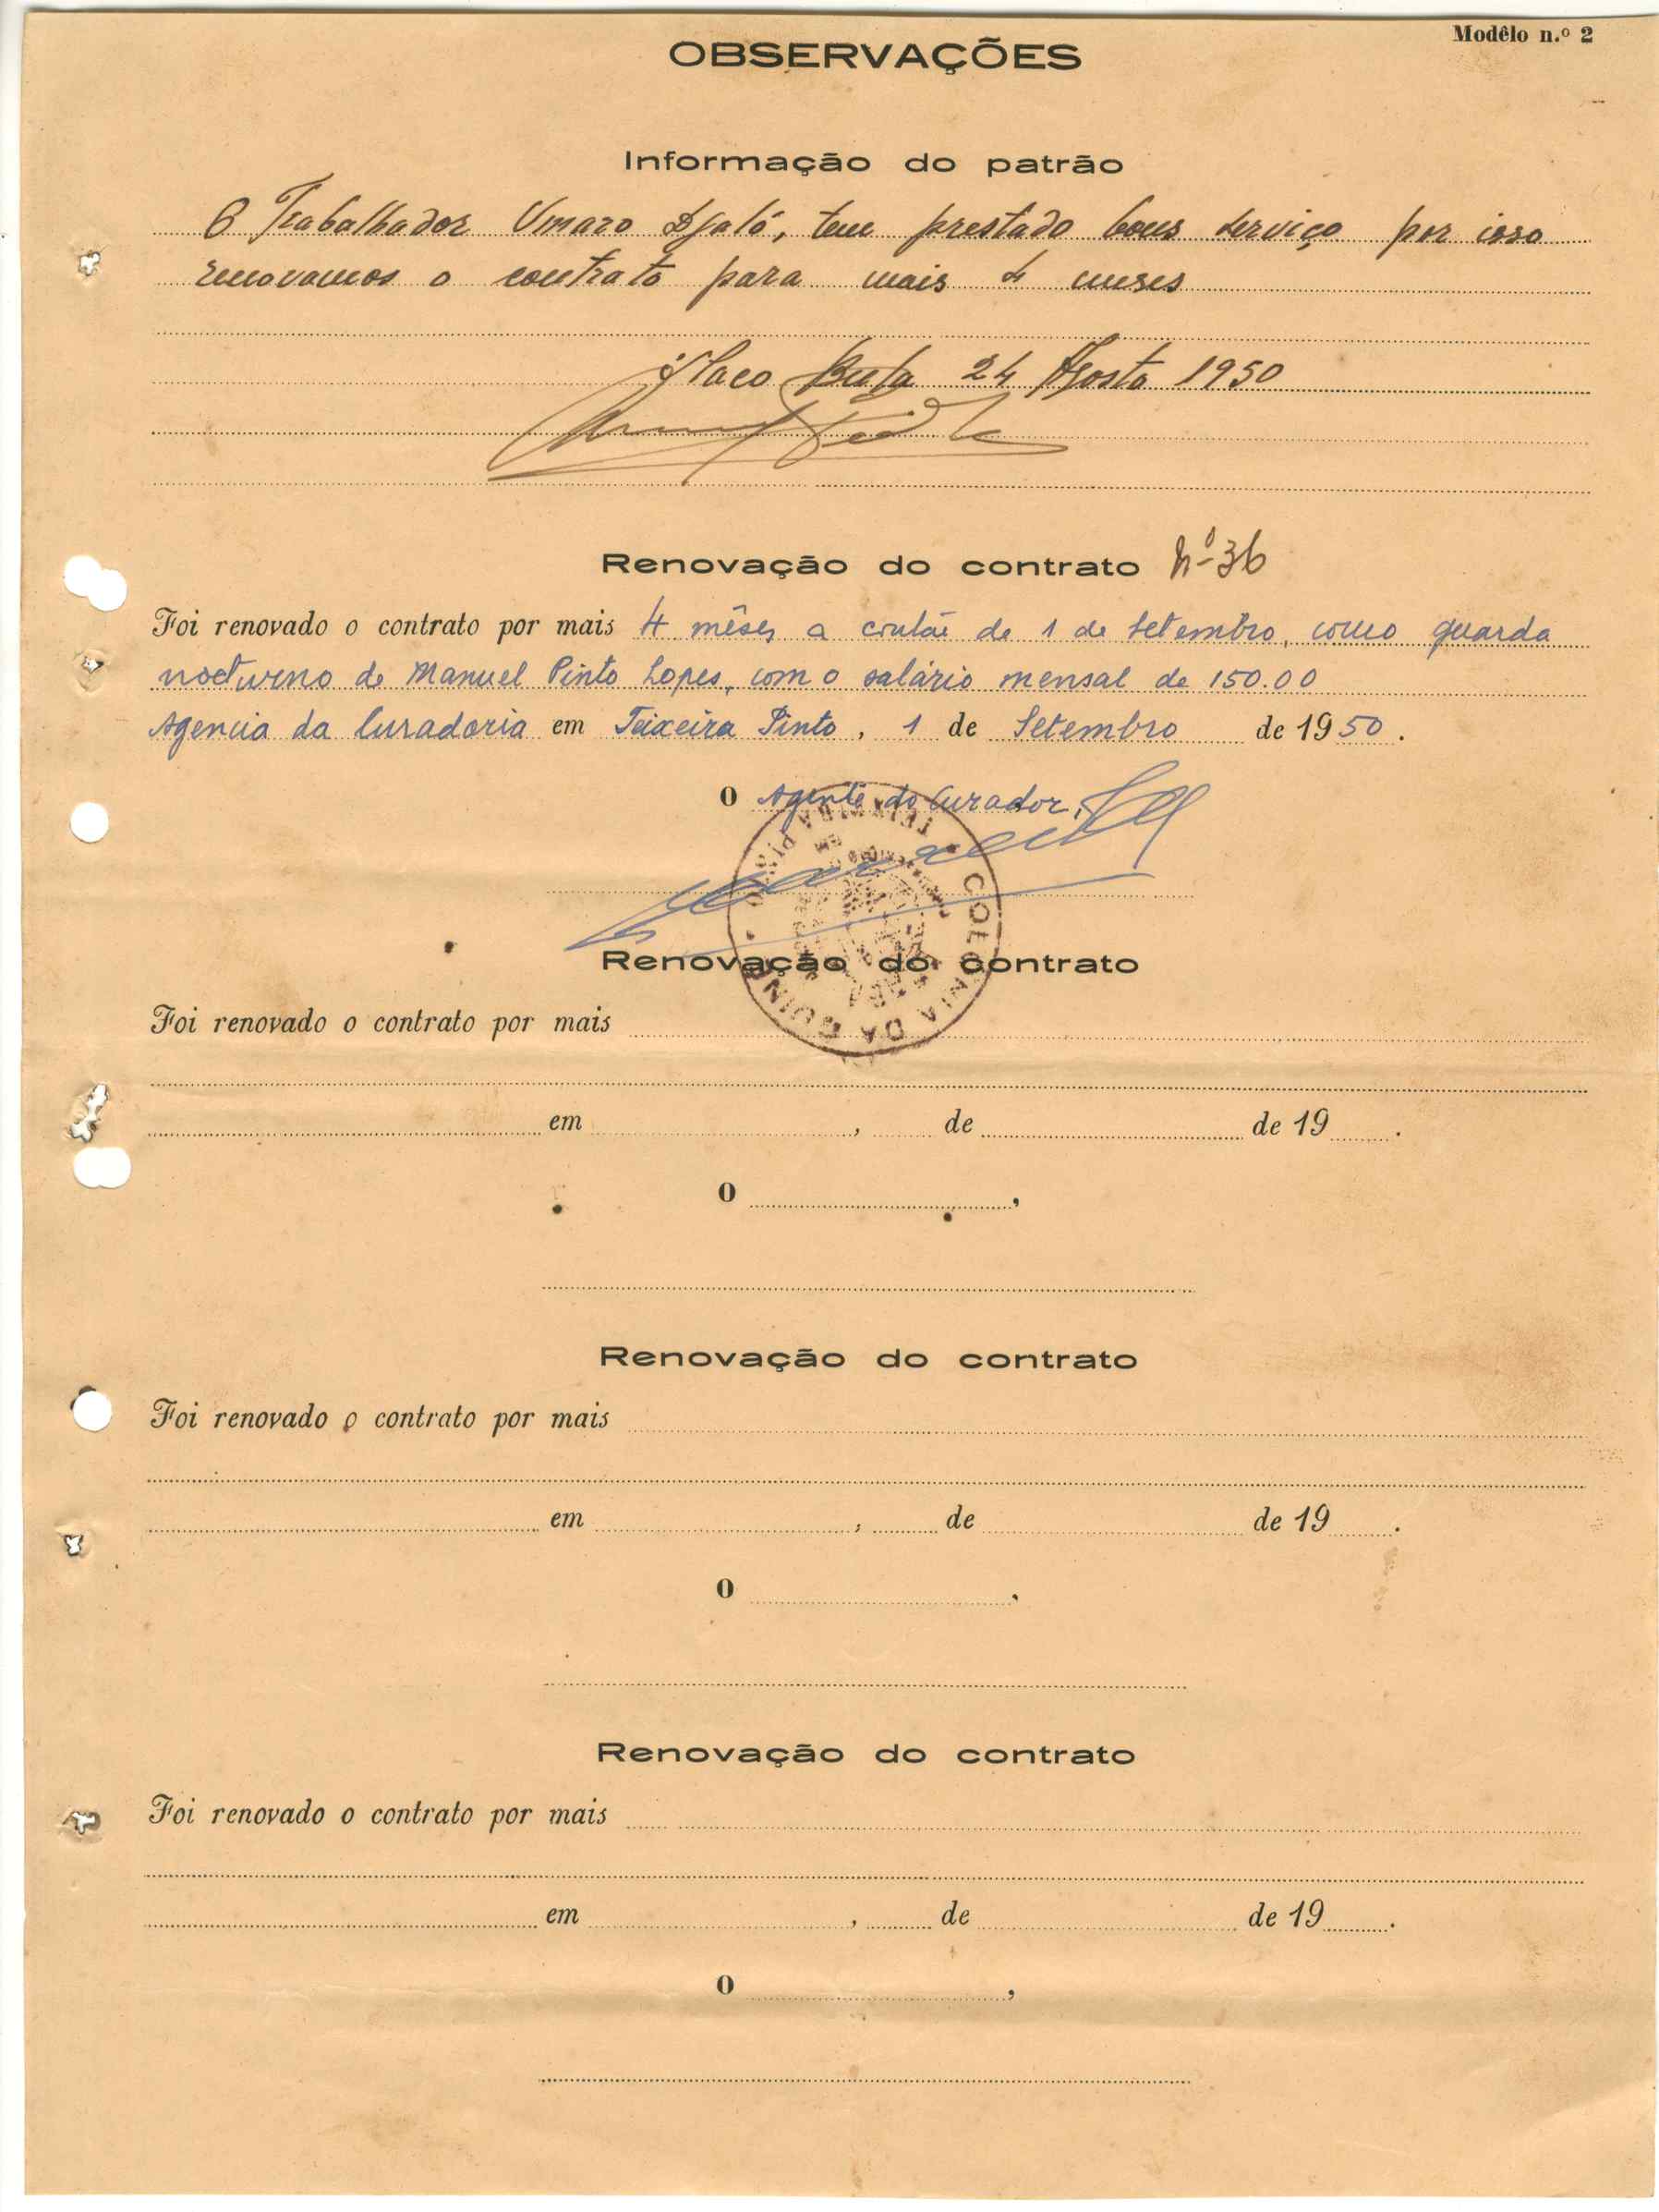 Modêlo n.º 2
OBSERVAÇÕES
Informação do patrão
O Trabalhador Umaro Djaló, tem prestado bons serviço por isso
renovamos o contrato para mais 4 meses
Bula 24 Agosto 1950
Renovação do contrato Nº 36
Foi renovado o contrato por mais 4 mêses a contar de 1 de Setembro, como guarda
nocturno de Manuel Pinto Lopes, com o salário mensal de 150.00
Agencia da Curadoria em Teixeira Pinto, 1 de Setembro de 1950.
O Agente do Curador,
COLONIA DA GUINÉ
TEIXEIRA PINTO
Renovação do contrato
Foi renovado o contrato por mais
em , de de 19 .
O ,
Renovação do contrato
Foi renovado o contrato por mais
em , de de 19 .
O ,
Renovação do contrato
Foi renovado o contrato por mais
em , de de 19 .
O ,